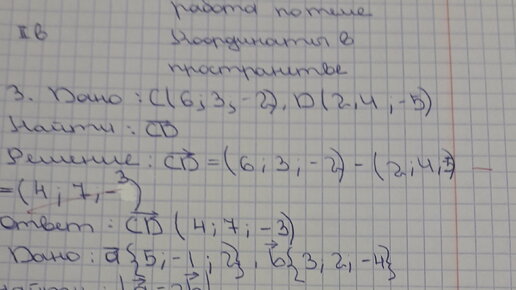 работа по теме
II в Координаты в
пространстве
3. Дано: C(6; 3; -2), D(2,4, -5)
Найти: CD
Решение: CD = (6; 3; -2) - (2; 4; -5)
= (4; 7, -3)
ответ: CD (4; 7; -3)
Дано: a{5; -1; 2}, b{3, 2; -4}